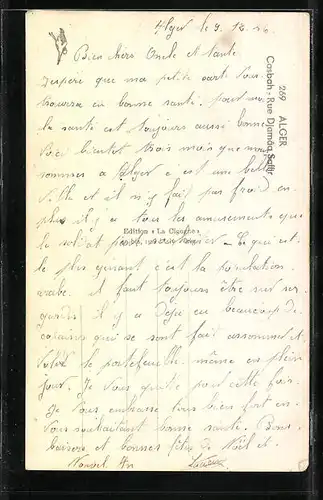 Alger le 9. 12.
Bien chers Oncle et tante
J'espère que ma petite carte vous
trouvera en bonne santé. pour moi
la santé est toujours aussi bonne
Voici bientôt trois mois que nous
sommes a Alger c'est une belle
ville et il n'y fait pas froid en
plus il y a tous les amusements que
le soldat peut - Ce qui est
le plus gênant c'est la population
arabe. il faut toujours être sur ses
gardes il y a déjà eu beaucoup de
copains qui se sont fait assommer et
voler le portefeuille même en plein
jour. Je vous quitte pour cette fois.
Je vous embrasse tous bien fort en
vous souhaitant bonne santé. Bons
baisers et bonnes fêtes de Noël et
Nouvel An
269 ALGER
Casbah - Rue Djamâa Safir
Edition « La Cigogne »